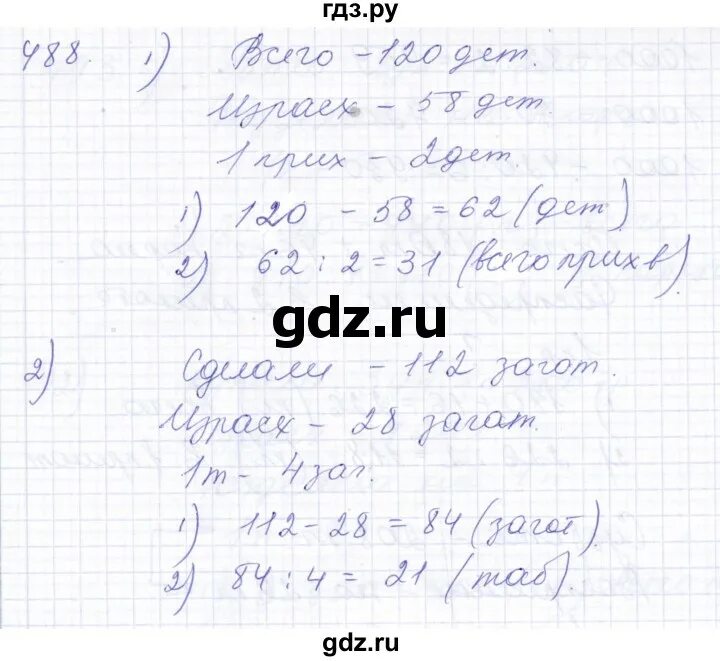 гдз.ру
488. 1) Всего - 120 дет.
Израсх - 58 дет.
1 прих - 2 дет
1) 120 - 58 = 62 (дет)
2) 62 : 2 = 31 (всего прих в)
gdz.ru
2) Сделали - 112 загот.
Израсх - 28 загот.
1т - 4 заг.
1) 112 - 28 = 84 (загот).
2) 84 : 4 = 21 (таб).
gdz.ru